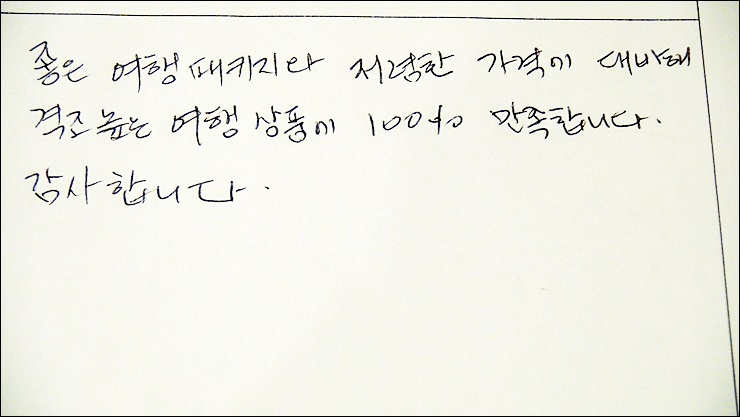 좋은 여행 패키지와 저렴한 가격에 대비해
격조 높은 여행 상품에 100% 만족합니다.
감사합니다.